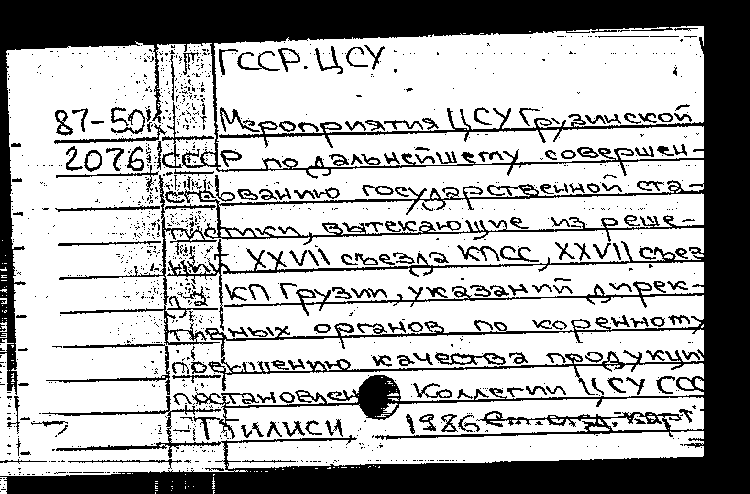 ГССР. ЦСУ.
87-50к Мероприятия ЦСУ Грузинской
2076 СССР по дальнейшему совершен-
ствованию государственной ста-
тистики, вытекающие из реше-
ний XXVII съезда КПСС, XXVII съез
да КП Грузии, указаний дирек-
тивных органов по коренному
повышению качества продукции
постановлен Коллегии ЦСУ ССС
Тбилиси, 1986